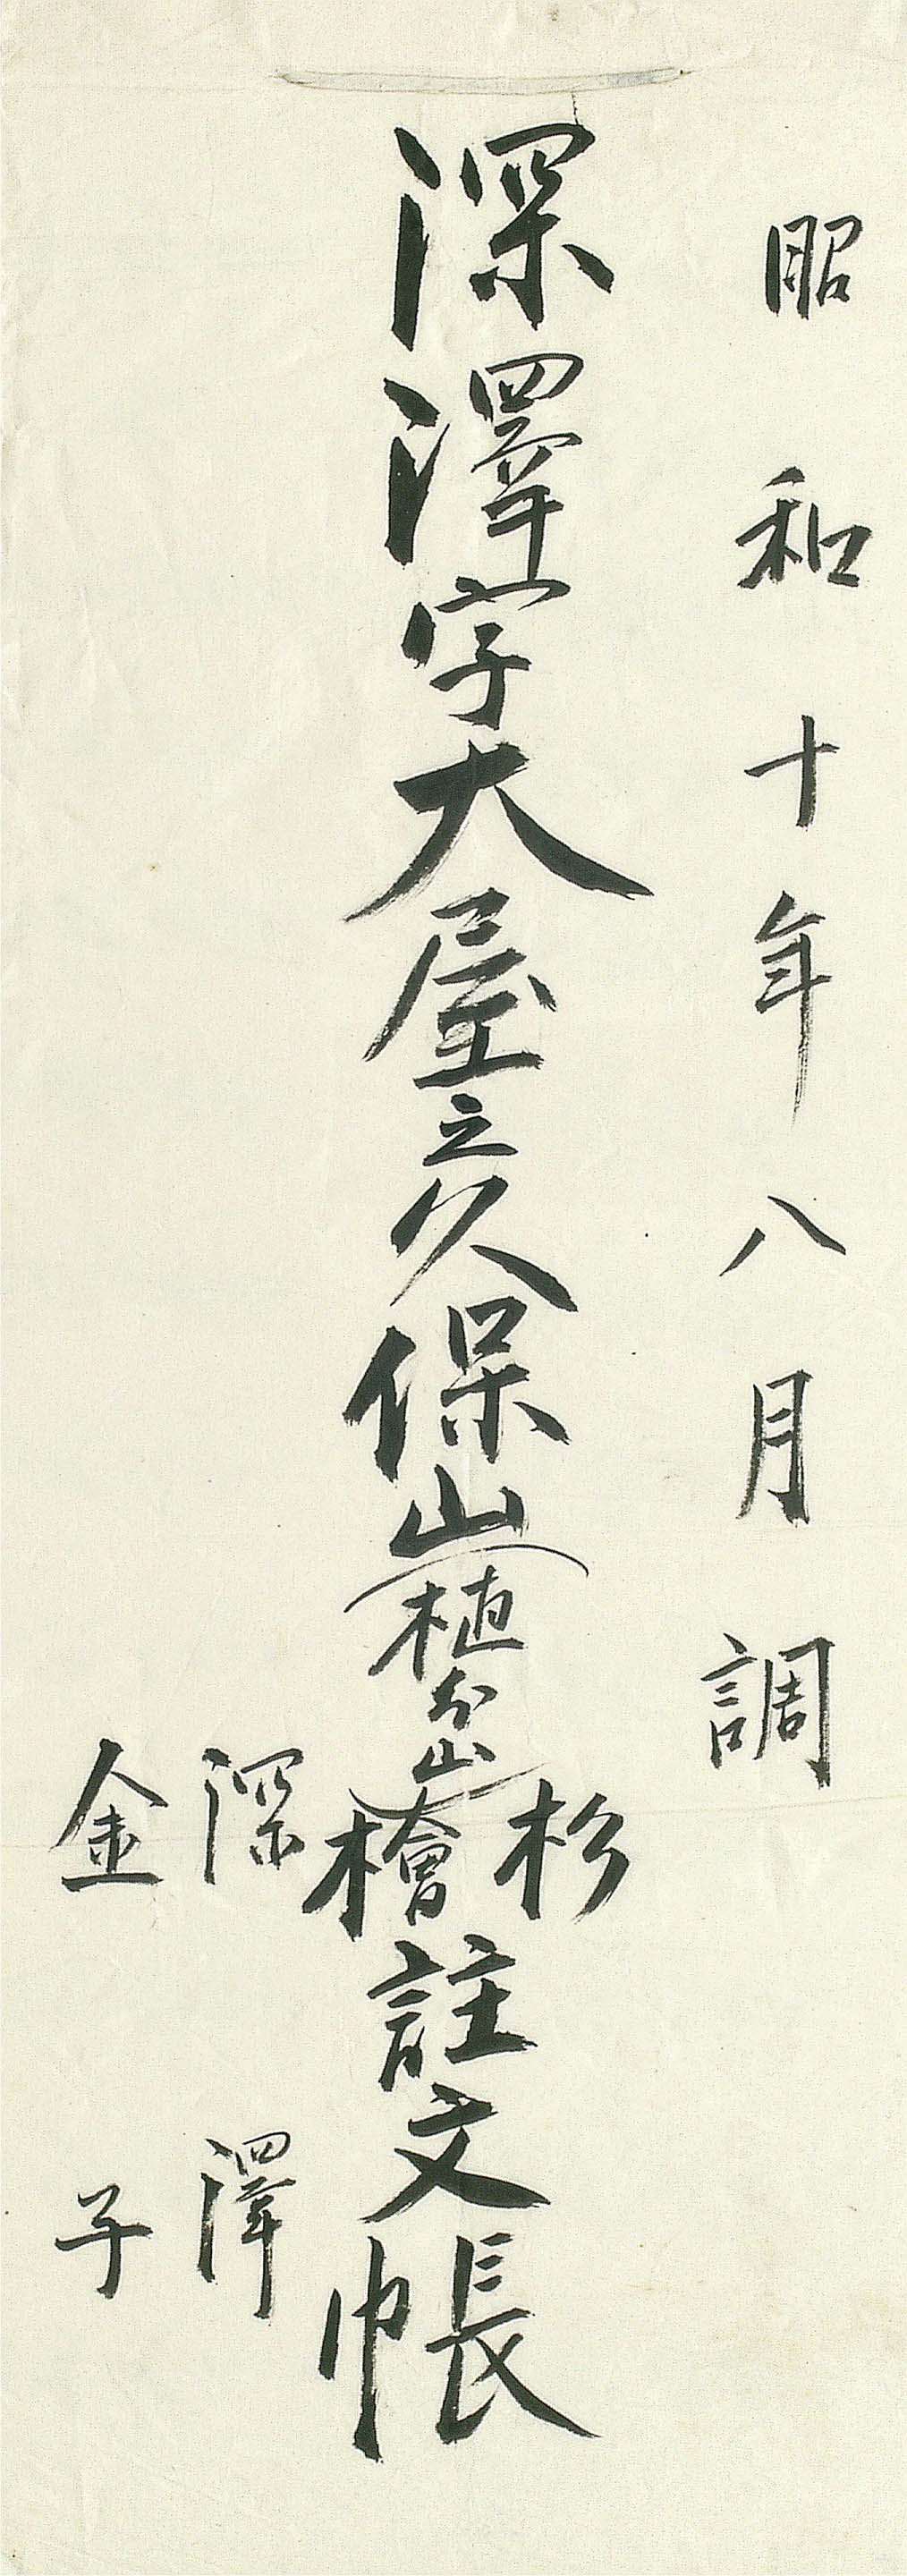 昭和十年八月調
深澤字大屋之久保山(植分山)杉檜註文帳
深澤
金子